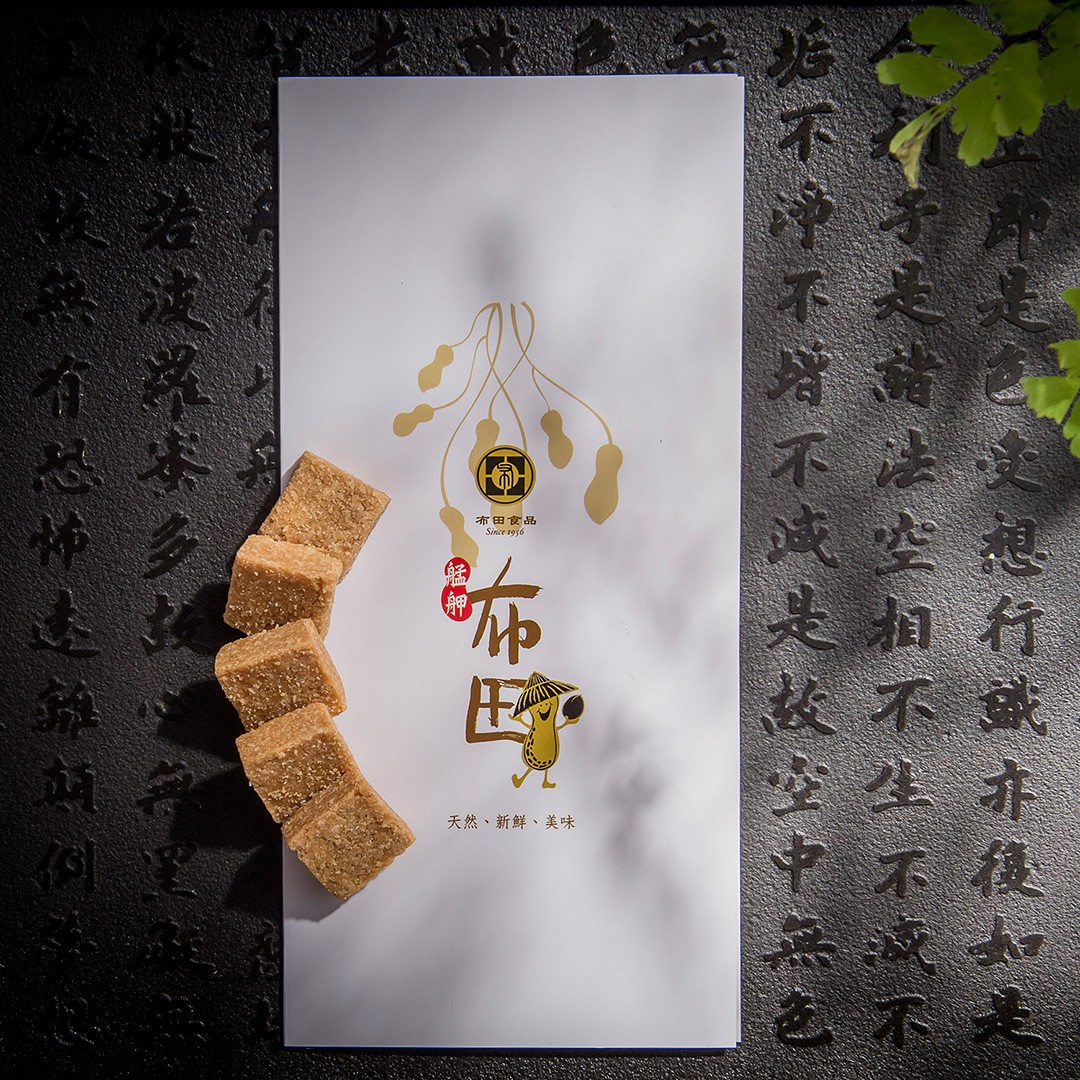 即是色受想行識亦復如是
舍利子是諸法空相不生不滅不
垢不淨不增不減是故空中無色
無
色
識
老
智
依般若波羅蜜多故心無罣礙無
罣礙故無有恐怖遠離顛倒夢想
布田食品
Since 1956
艋舺
布田
天然、新鮮、美味